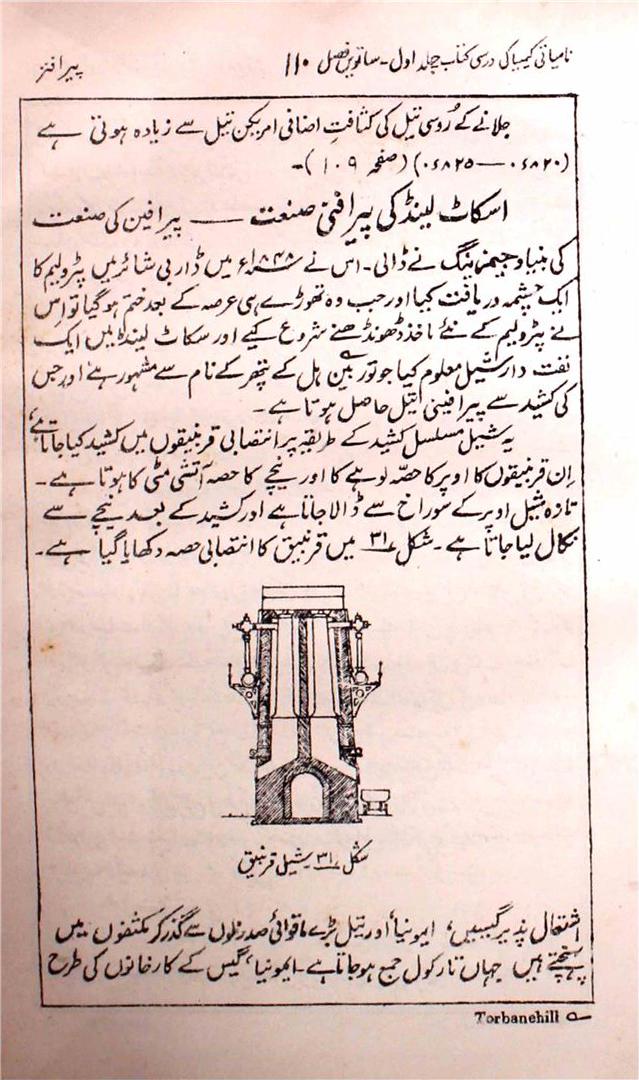 نامیاتی کیمیا کی درسی کتاب جلد اول - ساتویں فصل ۱۱۰ پیرافنز
جلانے کے رُوسی تیل کی کثافتِ اضافی امریکن تیل سے زیادہ ہوتی ہے
(۰۶۸۲۰ — ۰۶۸۲۵) (صفحہ ۱۰۹) -
اسکاٹ لینڈ کی پیرافنی صنعت — پیرافین کی صنعت
کی بنیاد جیمز ینگ نے ڈالی - اس نے ۱۸۴۸ء میں ڈاربی شائر میں پٹرولیم کا
ایک چشمہ دریافت کیا اور جب وہ تھوڑے ہی عرصہ کے بعد ختم ہو گیا تو اس
نے پٹرولیم کے نئے ماخذ ڈھونڈھنے شروع کیے اور سکاٹ لینڈ میں ایک
نفت دار شیل معلوم کیا جو توربین ہل کے پتھر کے نام سے مشہور ہے اور جس
کی کشید سے پیرافینی تیل حاصل ہوتا ہے -
یہ شیل مسلسل کشید کے طریقہ پر انتصابی قرنبیقوں میں کشید کیا جاتا ہے،
اِن قرنبیقوں کا اوپر کا حصّہ لوہے کا اور نیچے کا حصہ آتشی مٹی کا ہوتا ہے -
تازہ شیل اوپر کے سوراخ سے ڈالا جاتا ہے اور کشید کے بعد نیچے سے
نکال لیا جاتا ہے - شکل ۳۱ میں قرنبیق کا انتصابی حصہ دکھایا گیا ہے -
شکل ۳۱ - شیل قرنبیق
اشتعال پذیر گیسیں، ایمونیا، اور تیل بڑے ماقوائی صدر نلوں سے گذر کر مکثفوں میں
پہنچتے ہیں جہاں تارکول جمع ہو جاتا ہے - ایمونیا، گیس کے کارخانوں کی طرح
Torbanehill